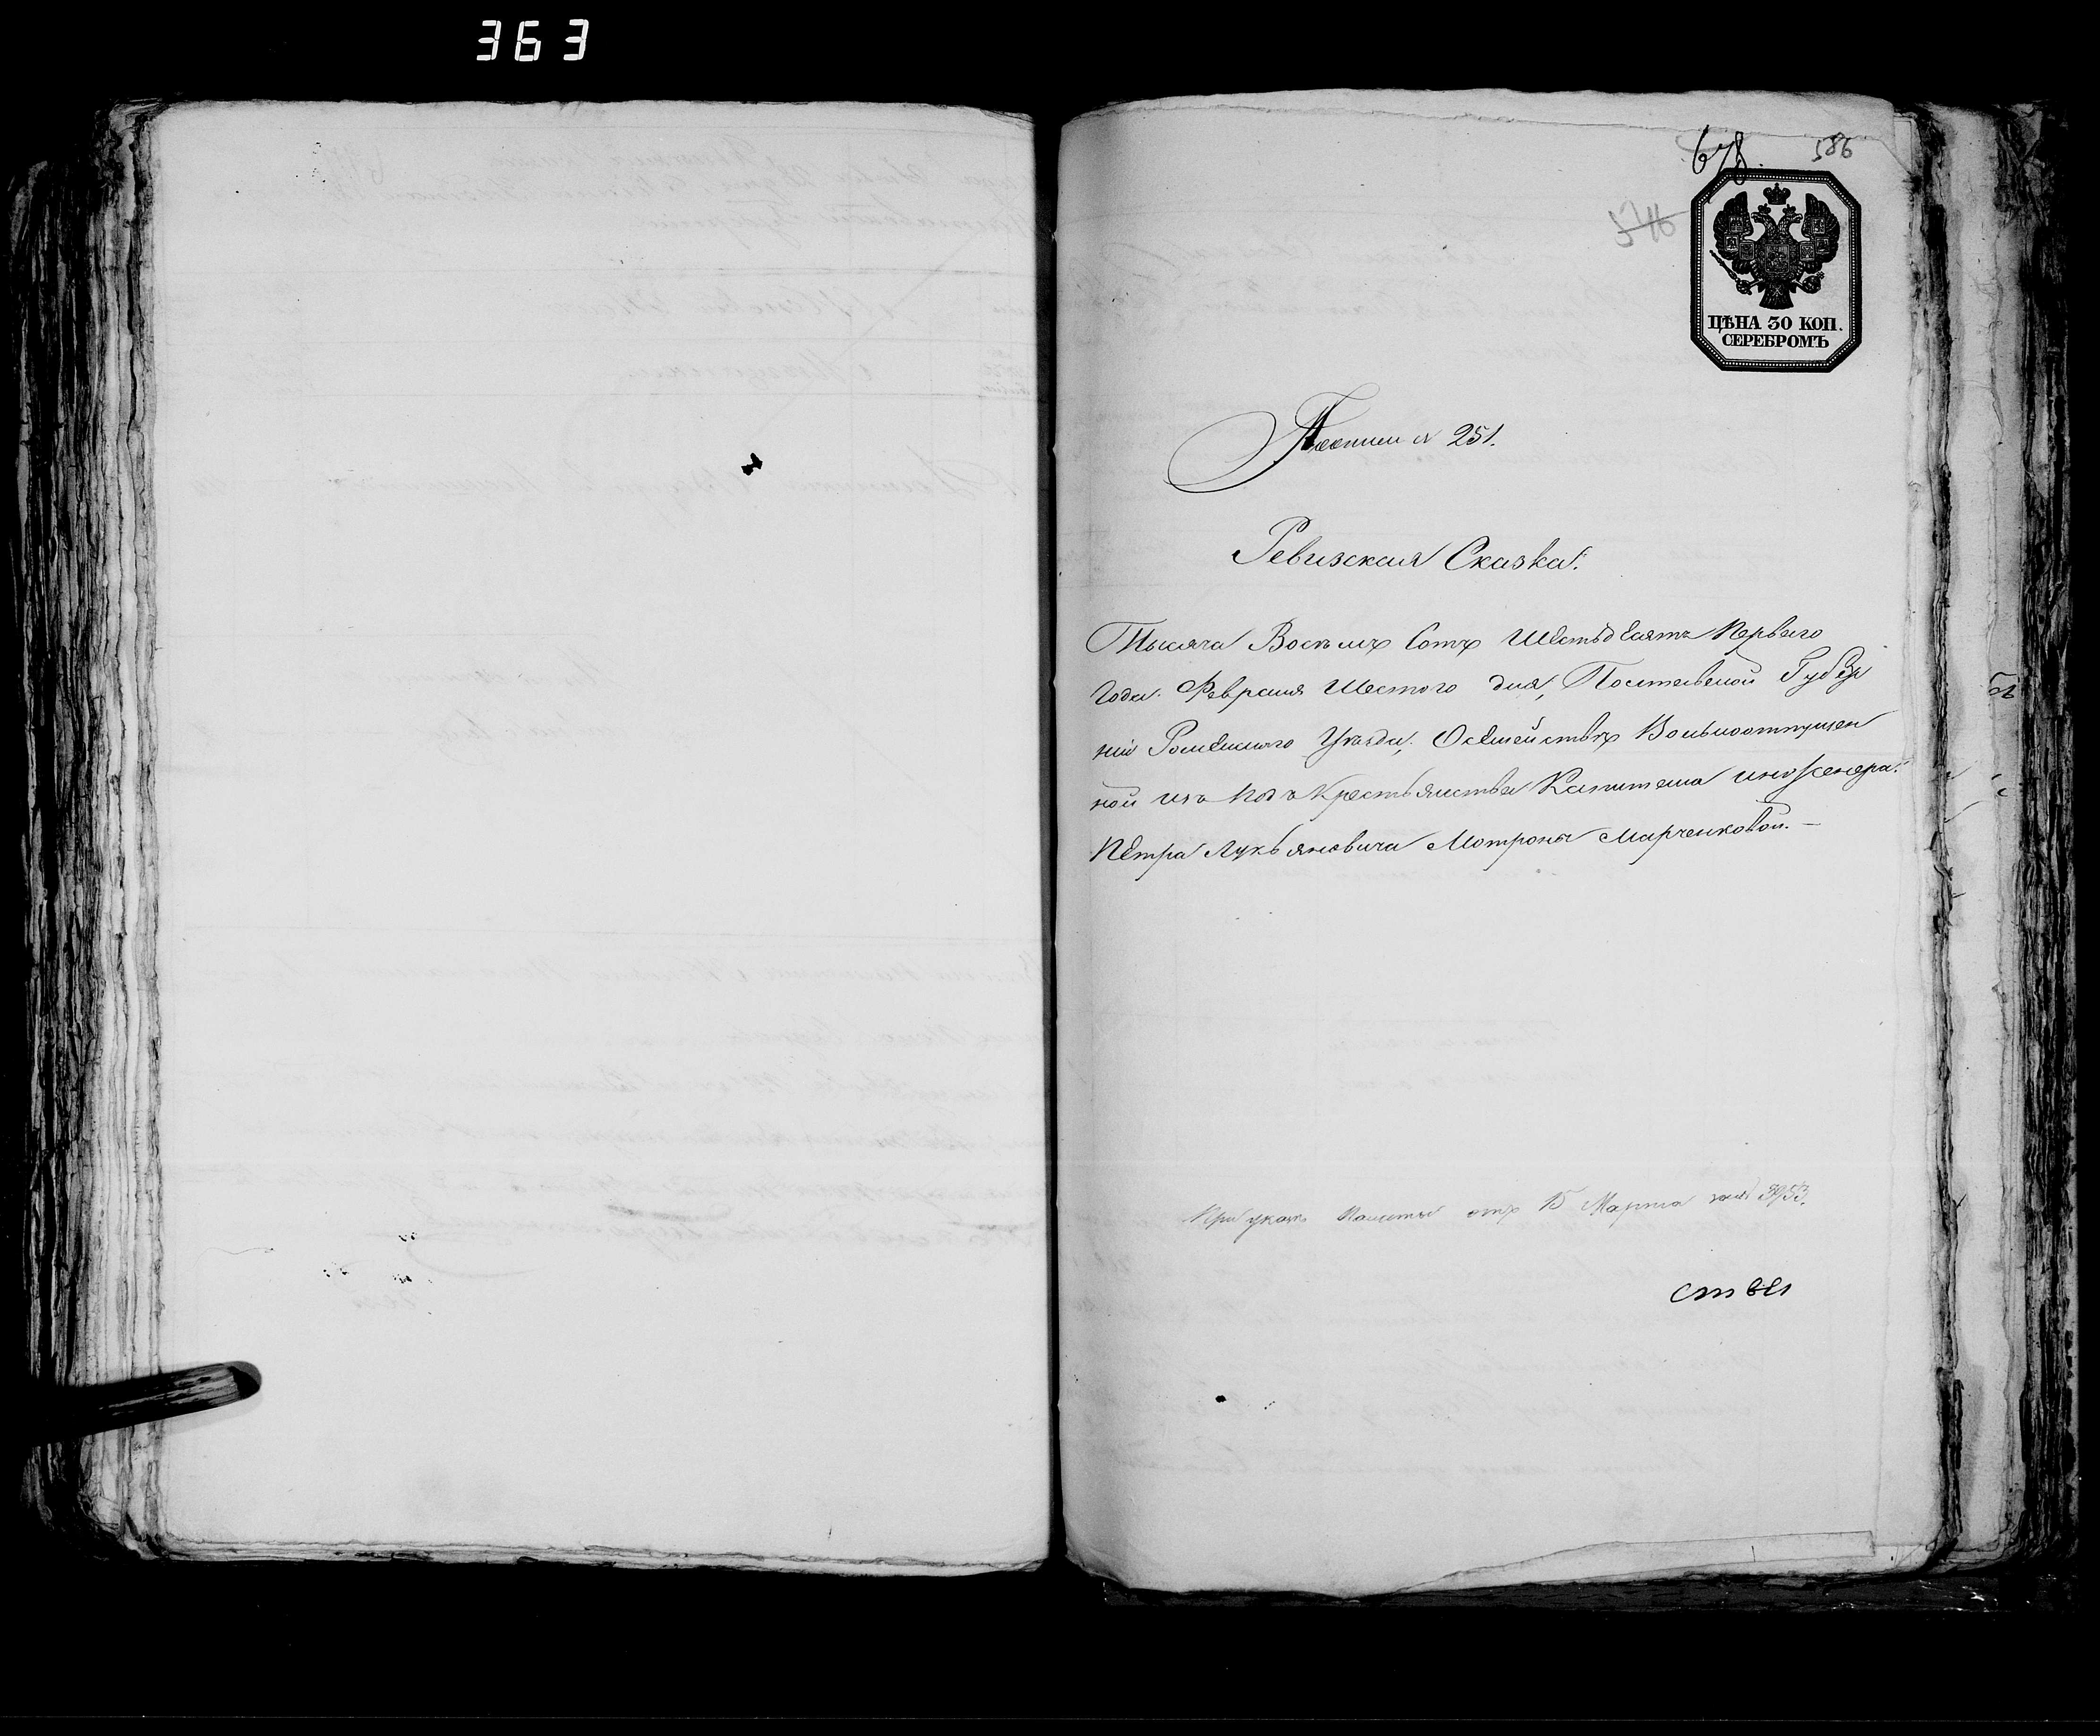 363
678.
586
576
ЦѢНА 30 КОП.
СЕРЕБРОМЪ
№ 251.
Ревизская Сказка.
Тысяча Восѣмъ Сотъ Шестьдесятъ Перваго
Года. Февраля Шестого дня, Полтавской Губер
ніи Роменскаго Уѣзда, О семействѣ Вольноотпущен
ной изъ подъ Крестьянства Капитана инженера.
Петра Лукьяновича Мотроны Марченковой. —
При указѣ Палаты отъ 15 Марта за № 3953.